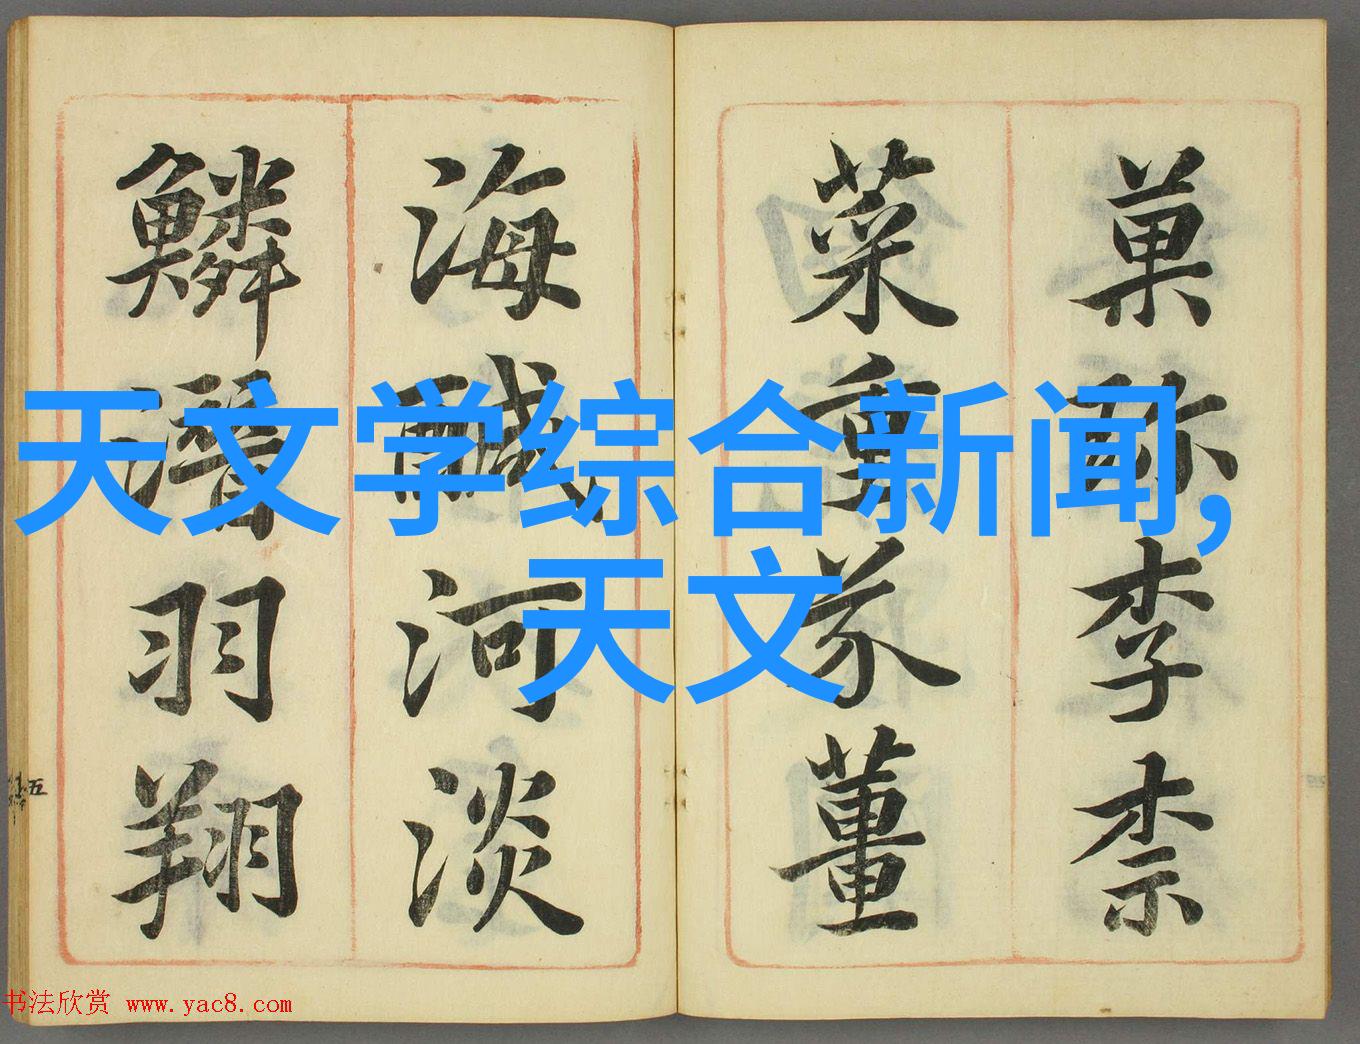 天文学综合新闻,
天文
菓珎李柰
菜重芥薑
海鹹河淡
鱗潛羽翔
五
书法欣赏 www.yac8.com